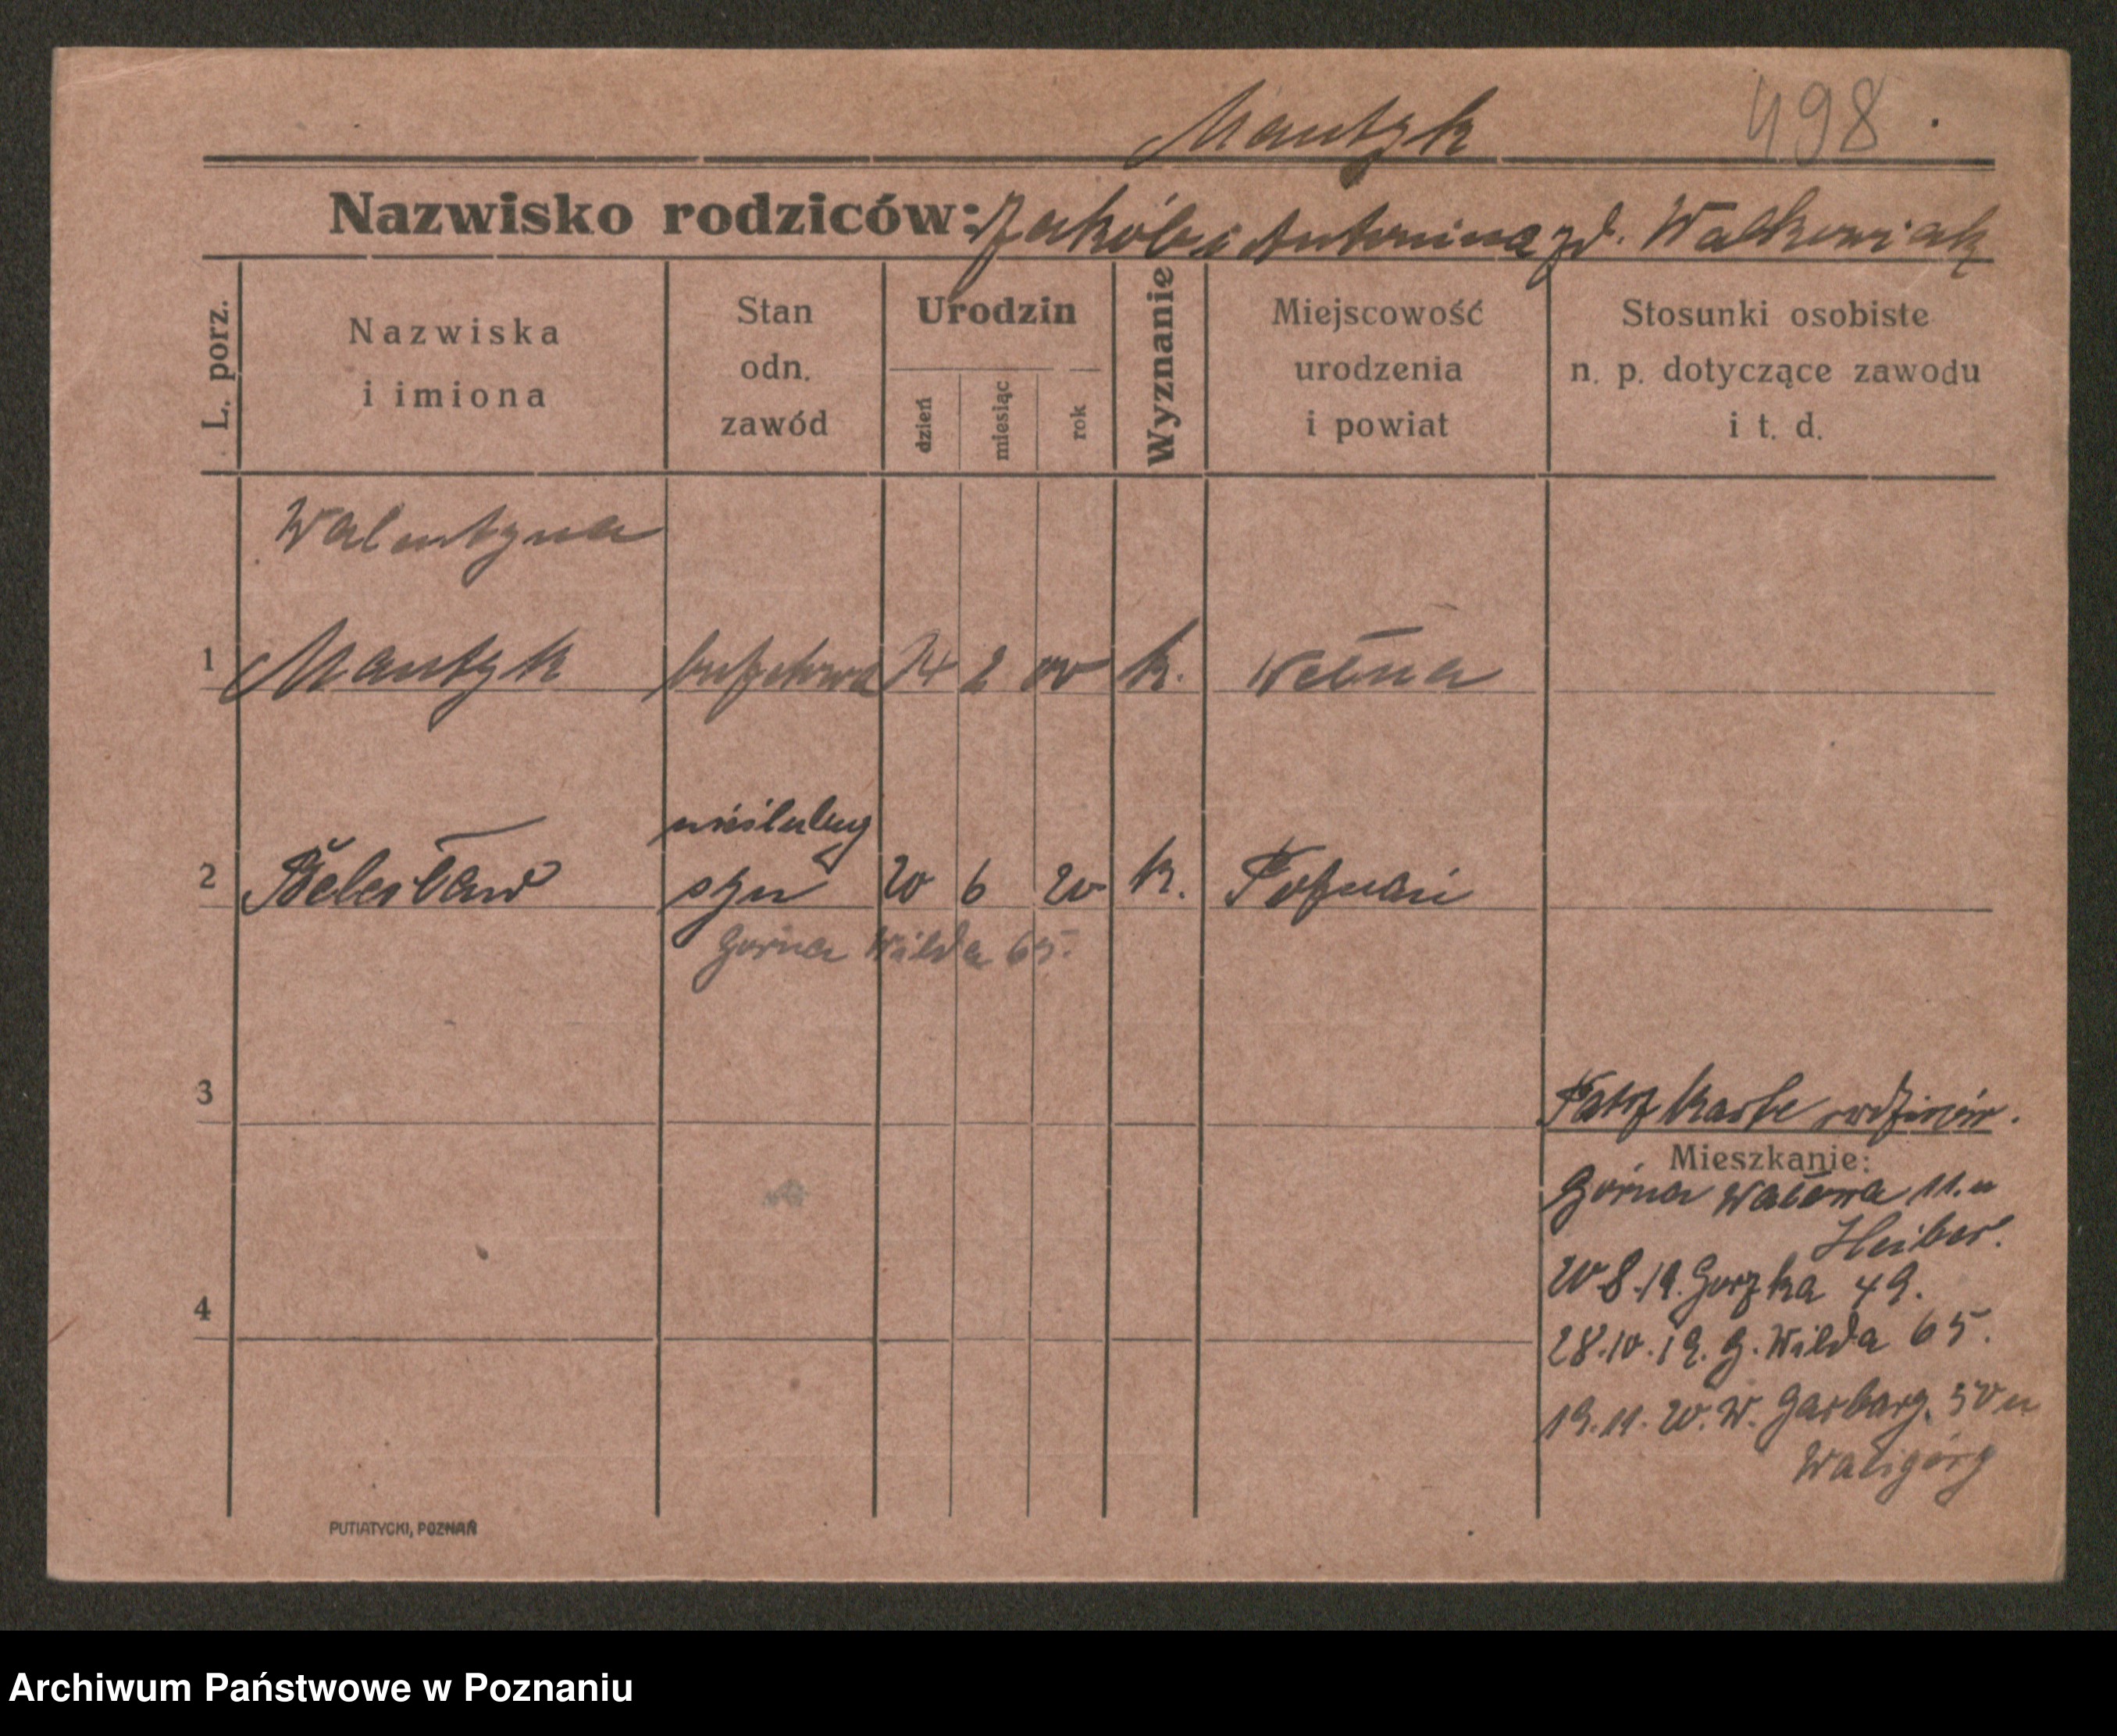 Mantyk 498
Nazwisko rodziców: Jakób i Antonina zd. Walkowiak
L. porz.
Nazwiska
i imiona
Stan
odn.
zawód
Urodzin
dzień
miesiąc
rok
Wyznanie
Miejscowość
urodzenia
i powiat
Stosunki osobiste
n. p. dotyczące zawodu
i t. d.
Walentyna
1 Mantyk bufetowa 14 2 00 k. Wełna
nieślubny
2 Bolesław syn 20 6 20 k. Poznań
Górna Wilda 65.
3
Patrz kartę rodziców.
Mieszkanie:
Górna Wałowa 11. u
Heiber.
20.8.19. Gorzka 49.
4
28.10.19. G. Wilda 65.
19.11.20. W. Garbary. 50 u
Waligóry
PUTIATYCKI, POZNAŃ
Archiwum Państwowe w Poznaniu